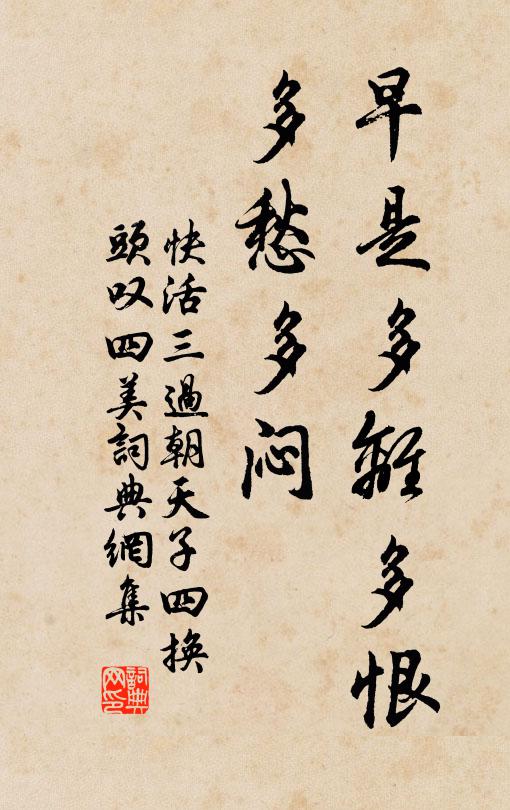 早是多離多恨
多愁多闷
快活三過朝天子四换
頭叹四美詞典網集
詞典
网印